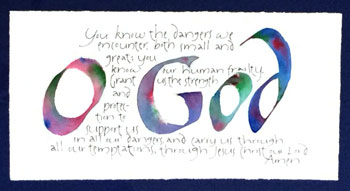 You know the dangers we
encounter, both small and
great: you
know our human frailty.
Grant us the strength
and
protec-
tion to
support us
in all our dangers and carry us through
all our temptations, through Jesus Christ our Lord
Amen
O God